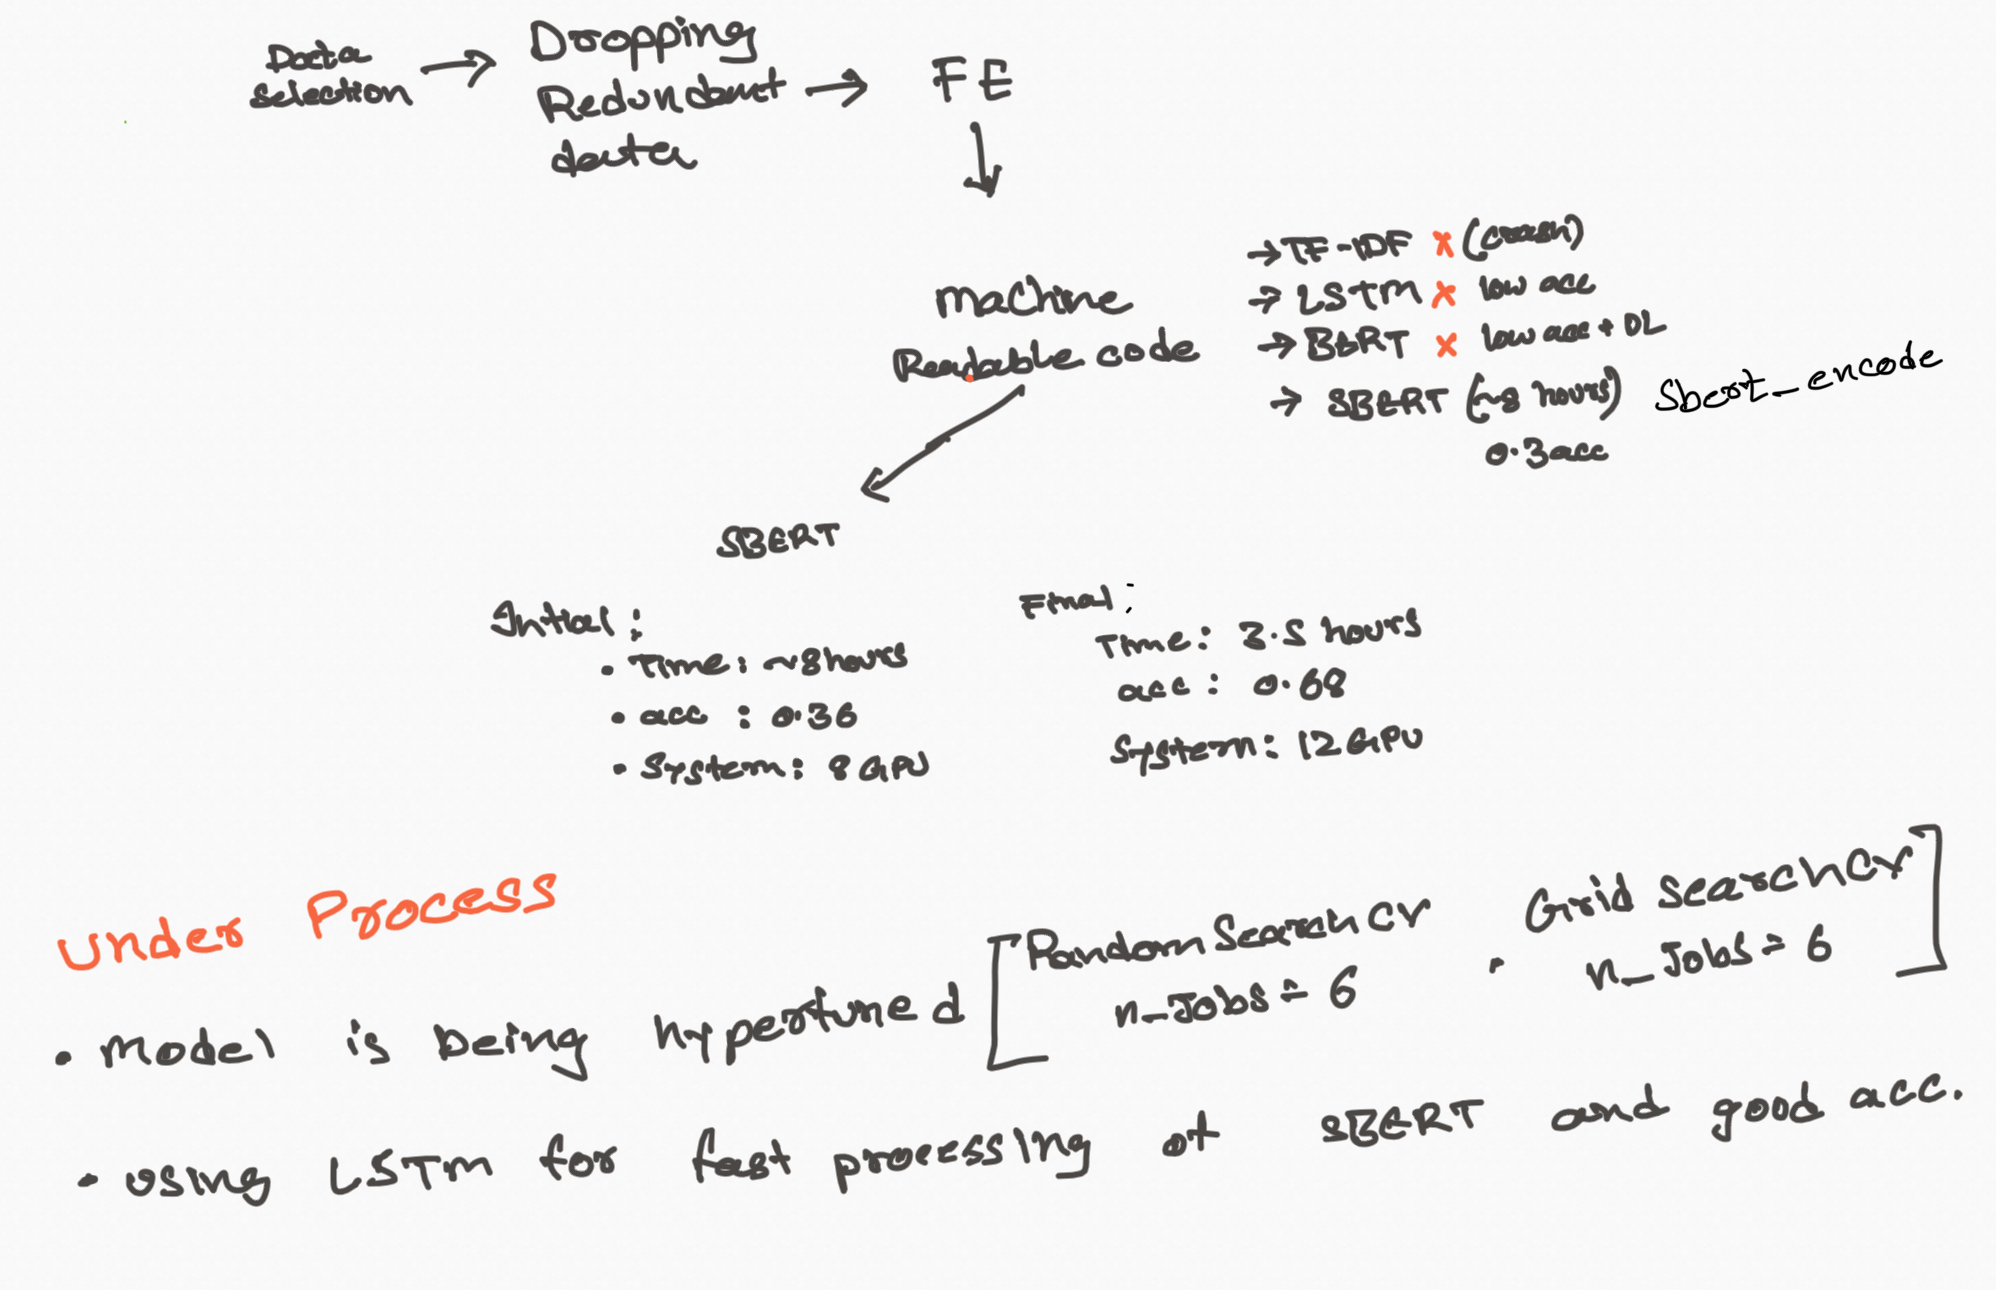 Data
Selection
→
Dropping
Redundant
data
→
FE
Machine
Readable code
→ TF-IDF x (crash)
→ LSTM x low acc
→ BERT x low acc + DL
→ SBERT (~8 hours) Sbert_encode
0.3acc
SBERT
Initial:
• Time: ~8hours
• acc : 0.36
• System: 8 GPU
Final:
Time: 3.5 hours
acc: 0.68
System: 12 GPU
Under Process
• Model is being hypertuned [RandomSearchCV • Grid SearchCV]
n_Jobs = 6 n_Jobs = 6
• Using LSTM for fast processing of SBERT and good acc.